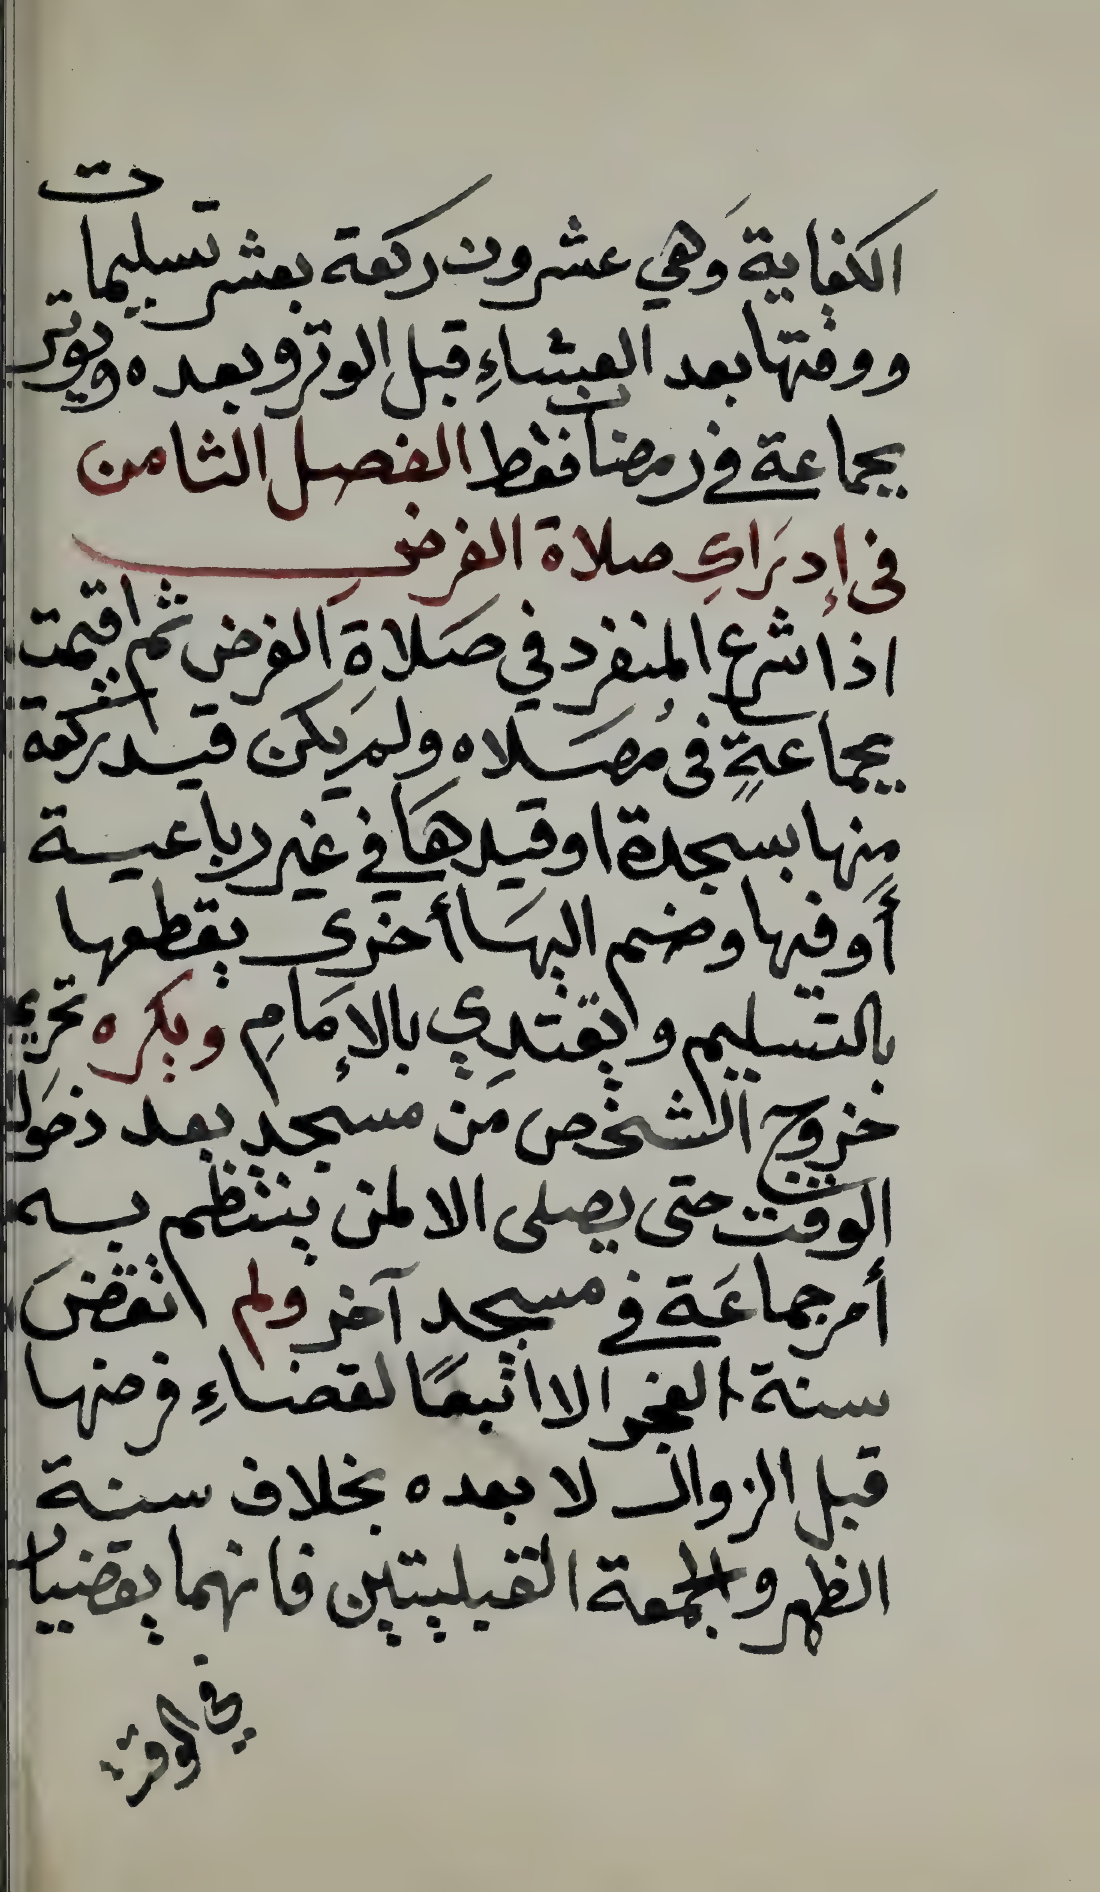 الكفاية وَهي عشرون ركعة بعشر تسليمات
ووقتها بعد العشاءِ قبل الوتر وبعده ويوتر
بجماعة في رمضان فقط الفصل الثامن
فى إدرَاكِ صلاة الفرضِ
اذا شرع المنفرد في صَلاة الفرض ثم اقيمت
بجماعةٍ فى مُصَلاه ولم يَكن قيد ركعة
مِنها بسجدة او قيدهَا في غير رباعيـة
أَو فيها وضم اليهَا أخرى يقطعها
بالتسليم ويقتدِي بالإمَامِ ويكره
خروج الشخص مَن مسجد بعد دخول
الوقت حتى يصلى الا لمن ينتظم بــه
أمر جماعَة في مسجد آخر ولم تقضَ
سنة الفجر الا تبعًا لقضاءِ فرضها
قبل الزوال لا بعده بخلاف سنـة
الظهر والجمعة القبليتين فانهما يقضيان
في الوقت